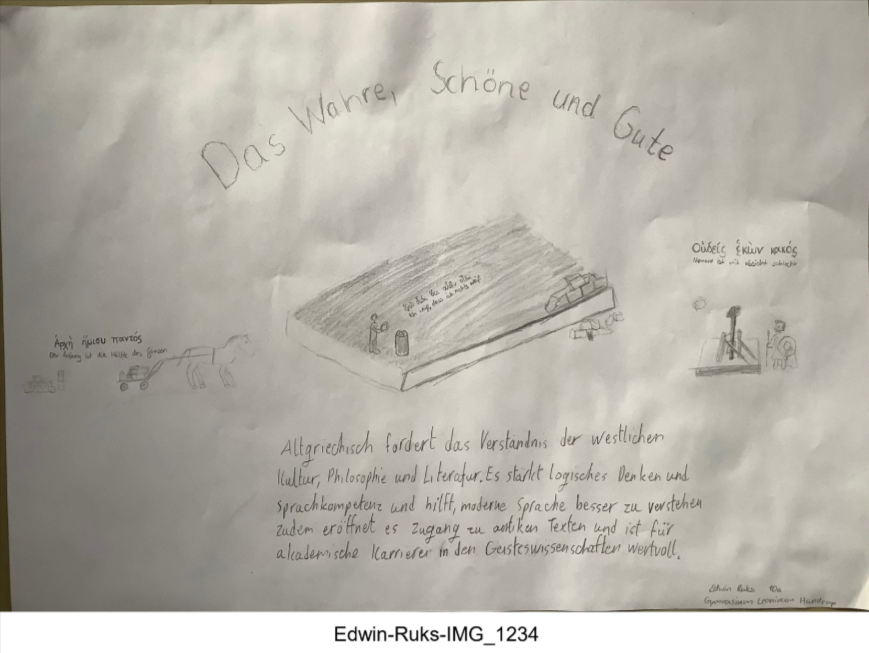 Das Wahre, Schöne und Gute
Οὐδείς ἑκὼν κακός
Niemand ist mit Absicht schlecht
Ich weiß, dass ich nichts weiß
Ἀρχή ἥμισυ παντός
Der Anfang ist die Hälfte des Ganzen
Altgriechisch fordert das Verständnis der westlichen
Kultur, Philosophie und Literatur. Es stärkt logisches Denken und
Sprachkompetenz und hilft, moderne Sprache besser zu verstehen
zudem eröffnet es Zugang zu antiken Texten und ist für
akademische Karrierer in den Geisteswissenschaften wertvoll.
Edwin Ruks 10a
Gymnasium Leoninum Handrup
Edwin-Ruks-IMG_1234